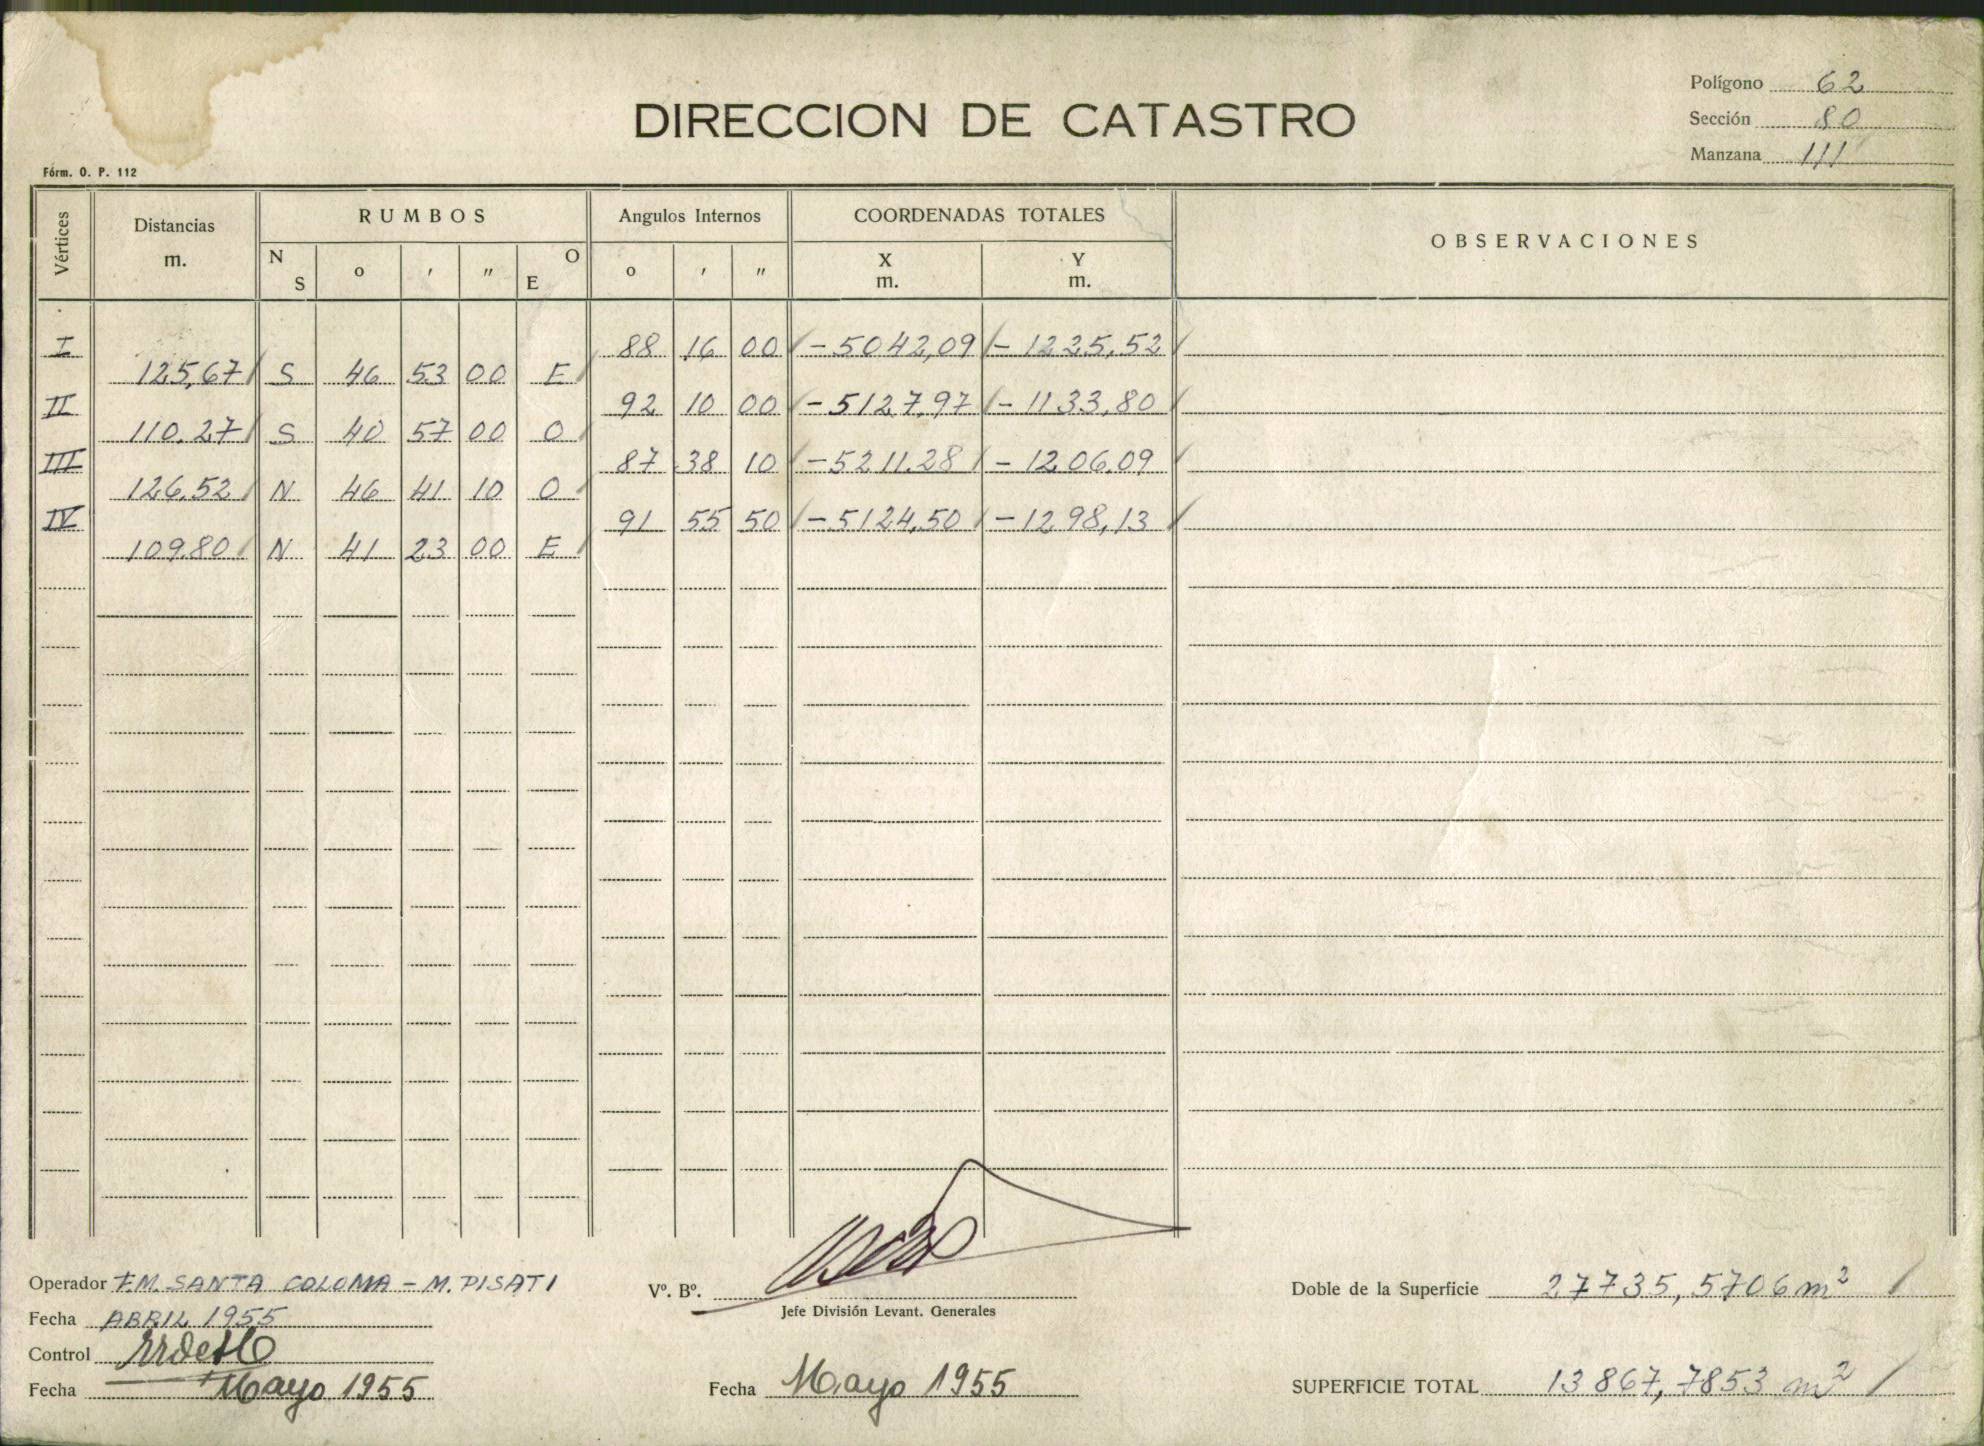 Polígono 62
DIRECCION DE CATASTRO
Sección 80
Manzana 111
Fórm. O. P. 112
Vértices Distancias m. RUMBOS N S o ' " O E Angulos Internos o ' " COORDENADAS TOTALES X m. Y m. OBSERVACIONES
I 88 16 00 -5042,09 -1225,52
125,67 S 46 53 00 E
II 92 10 00 -5127,97 -1133,80
110.27 S 40 57 00 O
III 87 38 10 -5211.28 -1206.09
126.52 N 46 41 10 O
IV 91 55 50 -5124,50 -1298,13
109.80 N 41 23 00 E
Operador F.M. SANTA COLOMA - M. PISATI
Vº. Bº.
Doble de la Superficie 27735,5706 m²
Jefe División Levant. Generales
Fecha ABRIL 1955
Control
Fecha Mayo 1955
Fecha Mayo 1955
SUPERFICIE TOTAL 13867,7853 m²